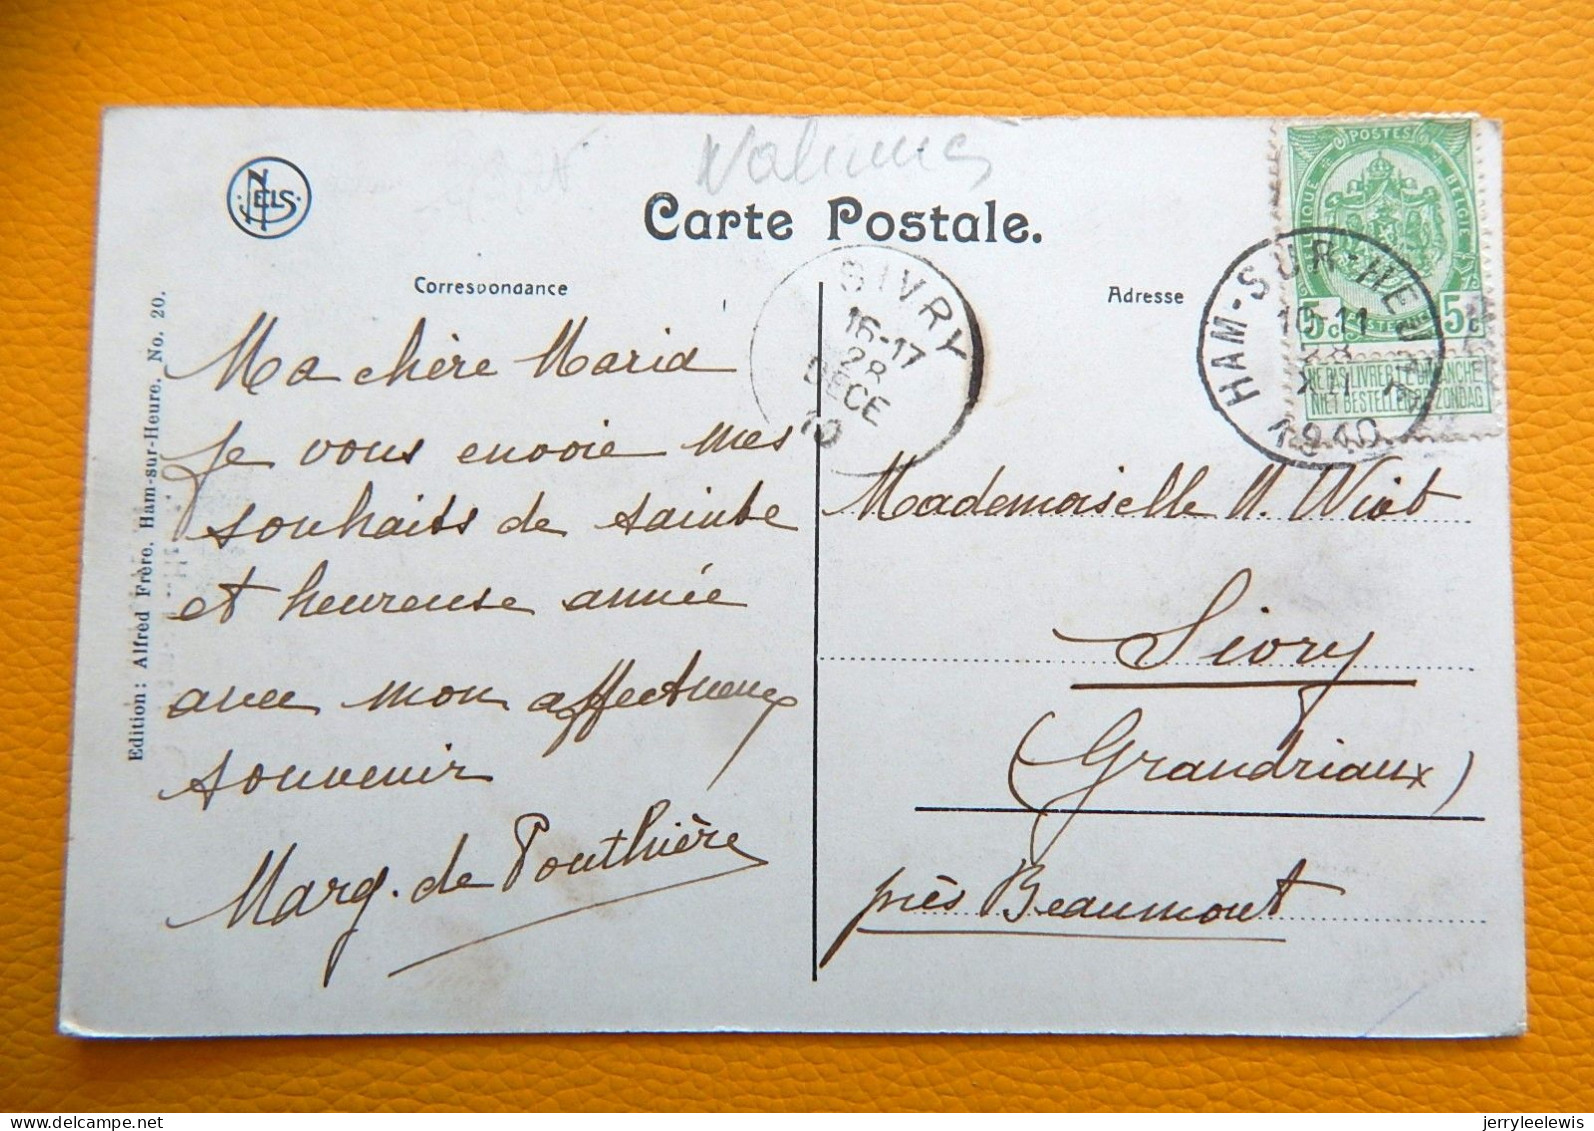 NELS
Carte Postale.
Correspondance
Adresse
Edition: Alfred Frère, Ham-sur-Heure. No. 20.
Ma chère Maria
Je vous envoie mes
souhaits de sainte
et heureuse année
avec mon affectueux
souvenir
Marg. de Pouthière
SIVRY
16-17
28
DECE
10
POSTES
BELGIQUE BELGIË
5c 5c
POSTERIJEN
NE PAS LIVRER LE DIMANCHE
NIET BESTELLEN OP ZONDAG
HAM-SUR-HEURE
10-11
28
XII
1910
Mademoiselle M. Wiot
Sivry
(Grandrieux)
près Beaumont
jerryleelewis